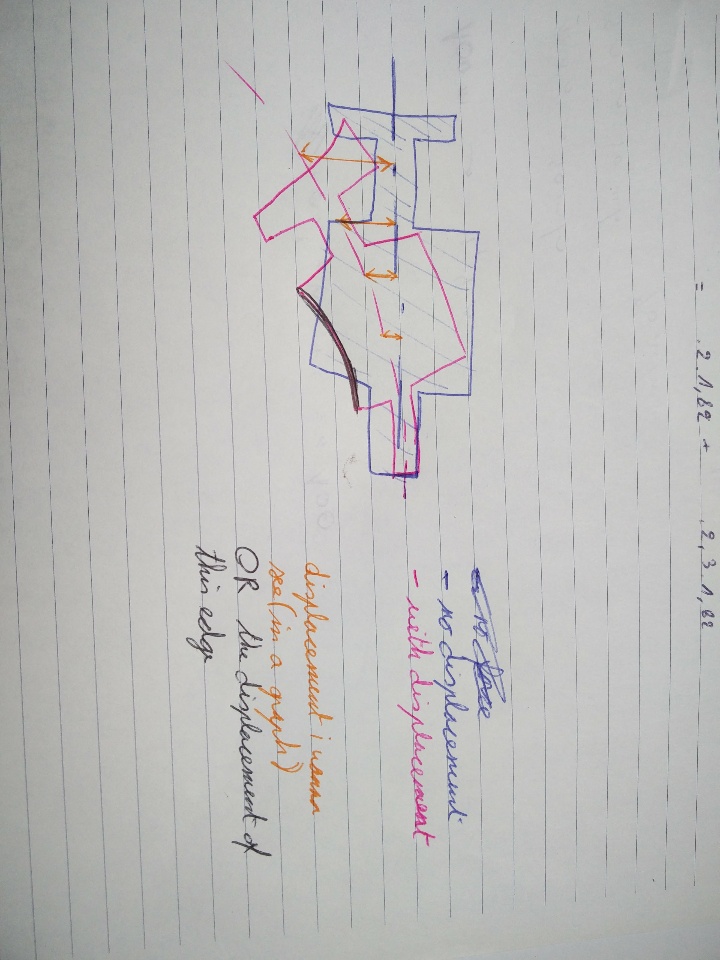 = 2.1,62 + 2,3.1,62
- no displacement
- with displacement
displacement i wanna
see (in a graph)
OR the displacement of
this edge